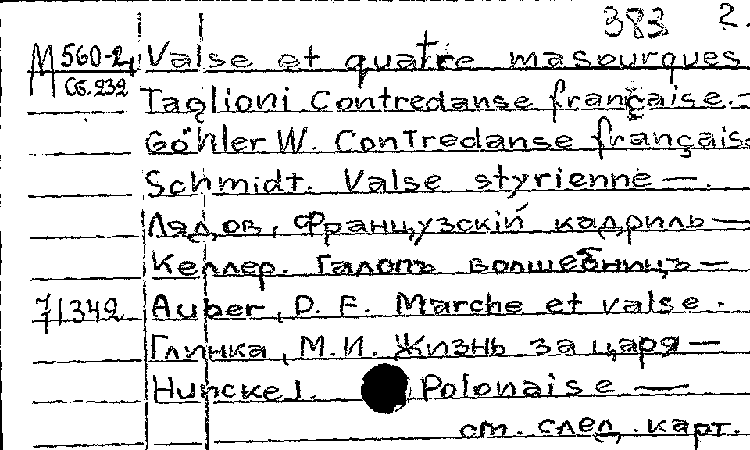 383 2.
М 560-2, Valse et quatre masourques
Сб. 232 Taglioni Contredanse française.—
Göhler W. Contredanse français
Schmidt. Valse styrienne —.
Лядов, Французскій кадриль —
Келлер. Галопъ волшебницъ —
71342 Auber, D. F. Marche et valse.
Глинка, М.И. Жизнь за царя —
Hunckel. Polonaise —
см. след. карт.